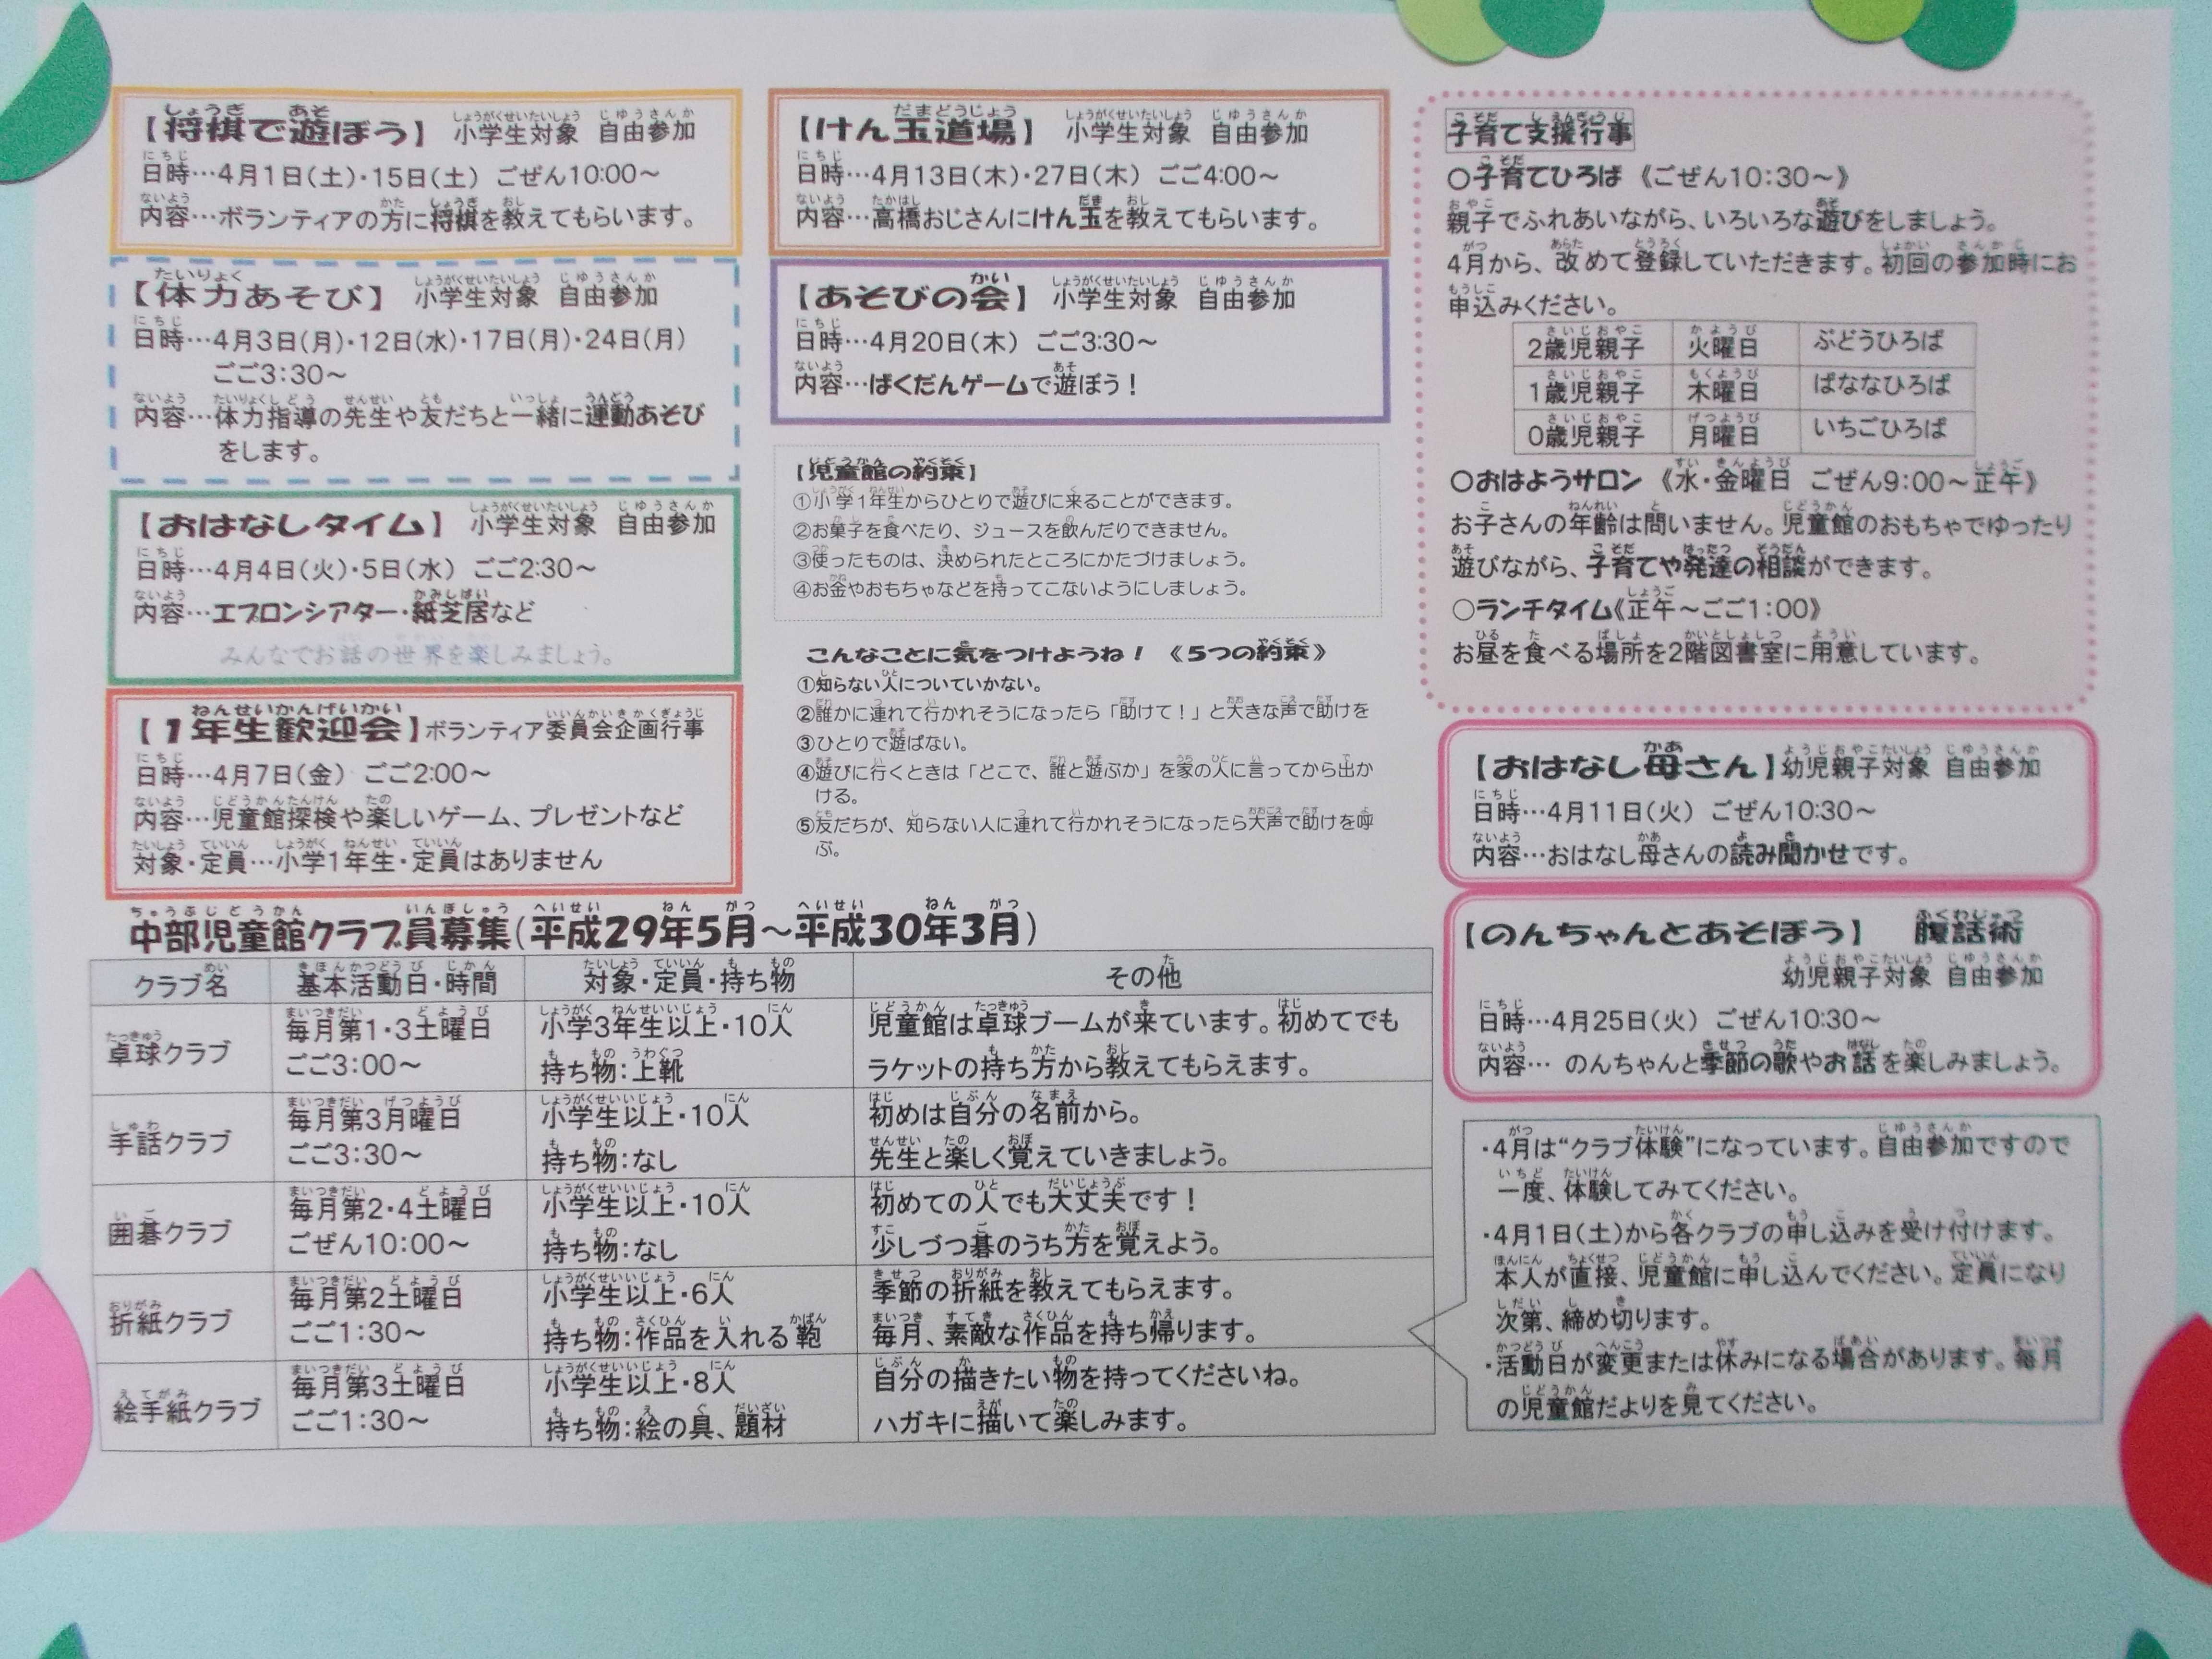 【将棋で遊ぼう】 小学生対象 自由参加
日時…4月1日(土)・15日(土) ごぜん10:00～
内容…ボランティアの方に将棋を教えてもらいます。
【体力あそび】 小学生対象 自由参加
日時…4月3日(月)・12日(水)・17日(月)・24日(月)
ごご3:30～
内容…体力指導の先生や友だちと一緒に運動あそび
をします。
【おはなしタイム】 小学生対象 自由参加
日時…4月4日(火)・5日(水) ごご2:30～
内容…エプロンシアター・紙芝居など
みんなでお話の世界を楽しみましょう。
【1年生歓迎会】ボランティア委員会企画行事
日時…4月7日(金) ごご2:00～
内容…児童館探検や楽しいゲーム、プレゼントなど
対象・定員…小学1年生・定員はありません
【けん玉道場】 小学生対象 自由参加
日時…4月13日(木)・27日(木) ごご4:00～
内容…高橋おじさんにけん玉を教えてもらいます。
【あそびの会】 小学生対象 自由参加
日時…4月20日(木) ごご3:30～
内容…ばくだんゲームで遊ぼう！
【児童館の約束】
①小学1年生からひとりで遊びに来ることができます。
②お菓子を食べたり、ジュースを飲んだりできません。
③使ったものは、決められたところにかたづけましょう。
④お金やおもちゃなどを持ってこないようにしましょう。
こんなことに気をつけようね！ 《5つの約束》
①知らない人についていかない。
②誰かに連れて行かれそうになったら「助けて！」と大きな声で助けを
③ひとりで遊ばない。
④遊びに行くときは「どこで、誰と遊ぶか」を家の人に言ってから出か
ける。
⑤友だちが、知らない人に連れて行かれそうになったら大声で助けを呼
ぶ。
子育て支援行事
○子育てひろば 《ごぜん10:30～》
親子でふれあいながら、いろいろな遊びをしましょう。
4月から、改めて登録していただきます。初回の参加時にお
申込みください。
2歳児親子 火曜日 ぶどうひろば
1歳児親子 木曜日 ばななひろば
0歳児親子 月曜日 いちごひろば
○おはようサロン 《水・金曜日 ごぜん9:00～正午》
お子さんの年齢は問いません。児童館のおもちゃでゆったり
遊びながら、子育てや発達の相談ができます。
○ランチタイム《正午～ごご1:00》
お昼を食べる場所を2階図書室に用意しています。
【おはなし母さん】幼児親子対象 自由参加
日時…4月11日(火) ごぜん10:30～
内容…おはなし母さんの読み聞かせです。
【のんちゃんとあそぼう】 腹話術
幼児親子対象 自由参加
日時…4月25日(火) ごぜん10:30～
内容… のんちゃんと季節の歌やお話を楽しみましょう。
中部児童館クラブ員募集(平成29年5月～平成30年3月)
クラブ名 基本活動日・時間 対象・定員・持ち物 その他
卓球クラブ 毎月第1・3土曜日 小学3年生以上・10人 児童館は卓球ブームが来ています。初めてでも
ごご3:00～ 持ち物:上靴 ラケットの持ち方から教えてもらえます。
手話クラブ 毎月第3月曜日 小学生以上・10人 初めは自分の名前から。
ごご3:30～ 持ち物:なし 先生と楽しく覚えていきましょう。
囲碁クラブ 毎月第2・4土曜日 小学生以上・10人 初めての人でも大丈夫です！
ごぜん10:00～ 持ち物:なし 少しづつ碁のうち方を覚えよう。
折紙クラブ 毎月第2土曜日 小学生以上・6人 季節の折紙を教えてもらえます。
ごご1:30～ 持ち物:作品を入れる鞄 毎月、素敵な作品を持ち帰ります。
絵手紙クラブ 毎月第3土曜日 小学生以上・8人 自分の描きたい物を持ってくださいね。
ごご1:30～ 持ち物:絵の具、題材 ハガキに描いて楽しみます。
・4月は“クラブ体験”になっています。自由参加ですので
一度、体験してみてください。
・4月1日(土)から各クラブの申し込みを受け付けます。
本人が直接、児童館に申し込んでください。定員になり
次第、締め切ります。
・活動日が変更または休みになる場合があります。毎月
の児童館だよりを見てください。